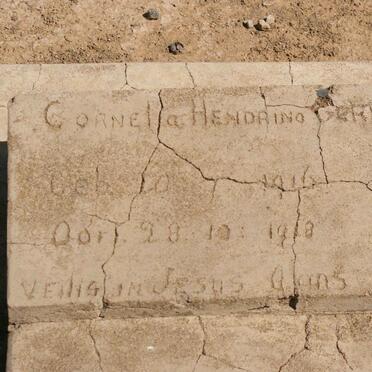 Cornelia Hendrino
Geb. 10 1916
Oorl. 28. 10. 1918
Veilig in Jesus Arms